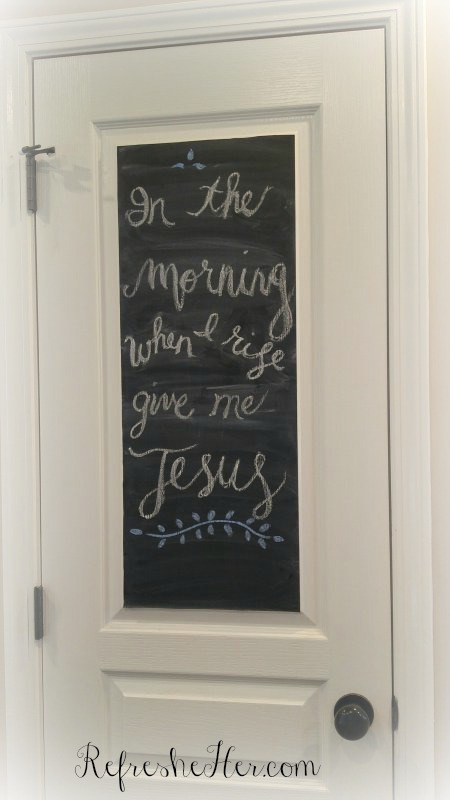 In the
morning
when I rise
give me
Jesus
RefresheHer.com